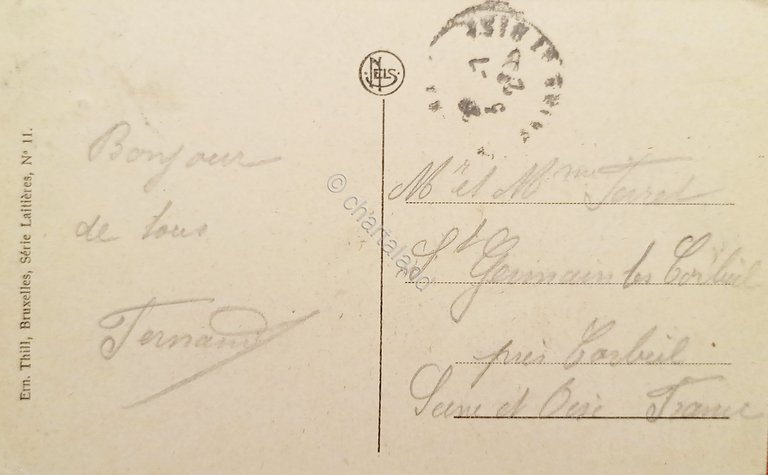 Ern. Thill, Bruxelles, Série Laitières, N° 11.
NELS
Bonjour
de tous
Fernand
Mr et Mme
St Germain les Corbeil
près Corbeil
Seine et Oise France
© chartaland